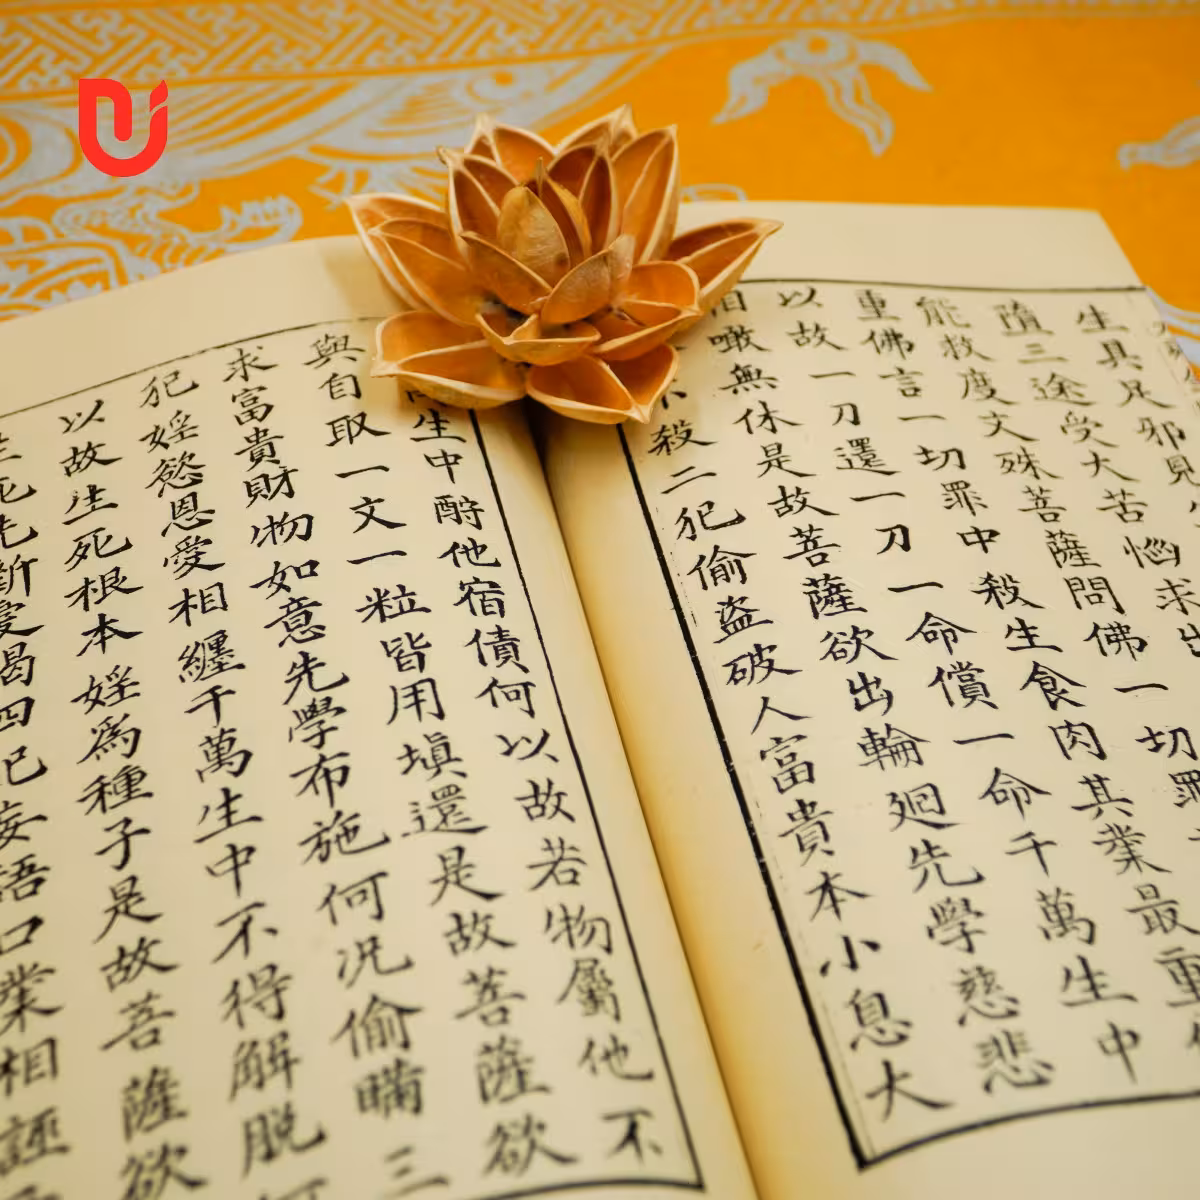 生具足邪見
墮三途受大苦惱求出
能救度文殊菩薩問佛一切罪
重佛言一切罪中殺生食肉其業最重
以故一刀還一刀一命償一命千萬生中
相噉無休是故菩薩欲出輪廻先學慈悲
不殺二犯偷盗破人富貴本小息大
生中酧他宿債何以故若物屬他不
與自取一文一粒皆用塡還是故菩薩欲
求富貴財物如意先學布施何况偷瞞三
犯婬慾恩愛相纏千萬生中不得解脱
以故生死根本婬爲種子是故菩薩欲
死先斷愛渴四犯妄語口業相誣